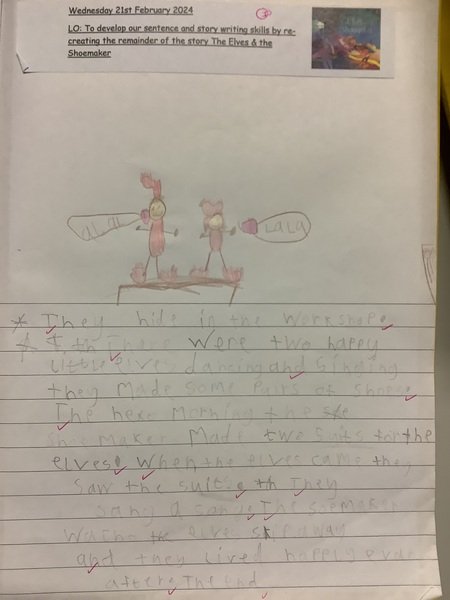 Wednesday 21st February 2024
LO: To develop our sentence and story writing skills by re-
creating the remainder of the story The Elves & the
Shoemaker
aLaL
LaLa
They hide in the workshope.
There were two happy
Little elves dancing and Singing
they made some pairs of shoes.
The next morning the
shoe maker Made two suits for the
elves. When the elves came they
saw the suits. They
sang a song. The shoemaker
the elves skip away
and they lived happely
after. The end.